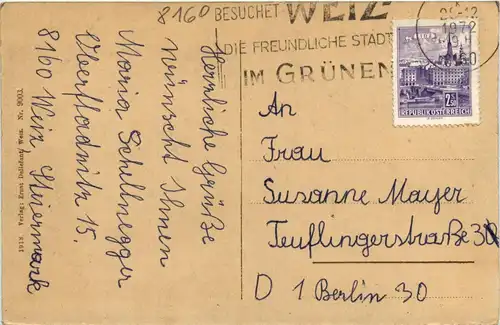 8160 BESUCHET WEIZ
DIE FREUNDLICHE STADT
IM GRÜNEN
1972
REPUBLIK ÖSTERREICH
Herzliche Grüße
wünscht Ihnen
Maria Schellnegger
Oberfladnitz 15.
8160 Weiz, Steiermark
An
Frau
Susanne Mayer
Teuflingerstraße 30
D 1 Berlin 30
1912 Verlag: Ernst Dollefant, Weiz. Nr. 9003